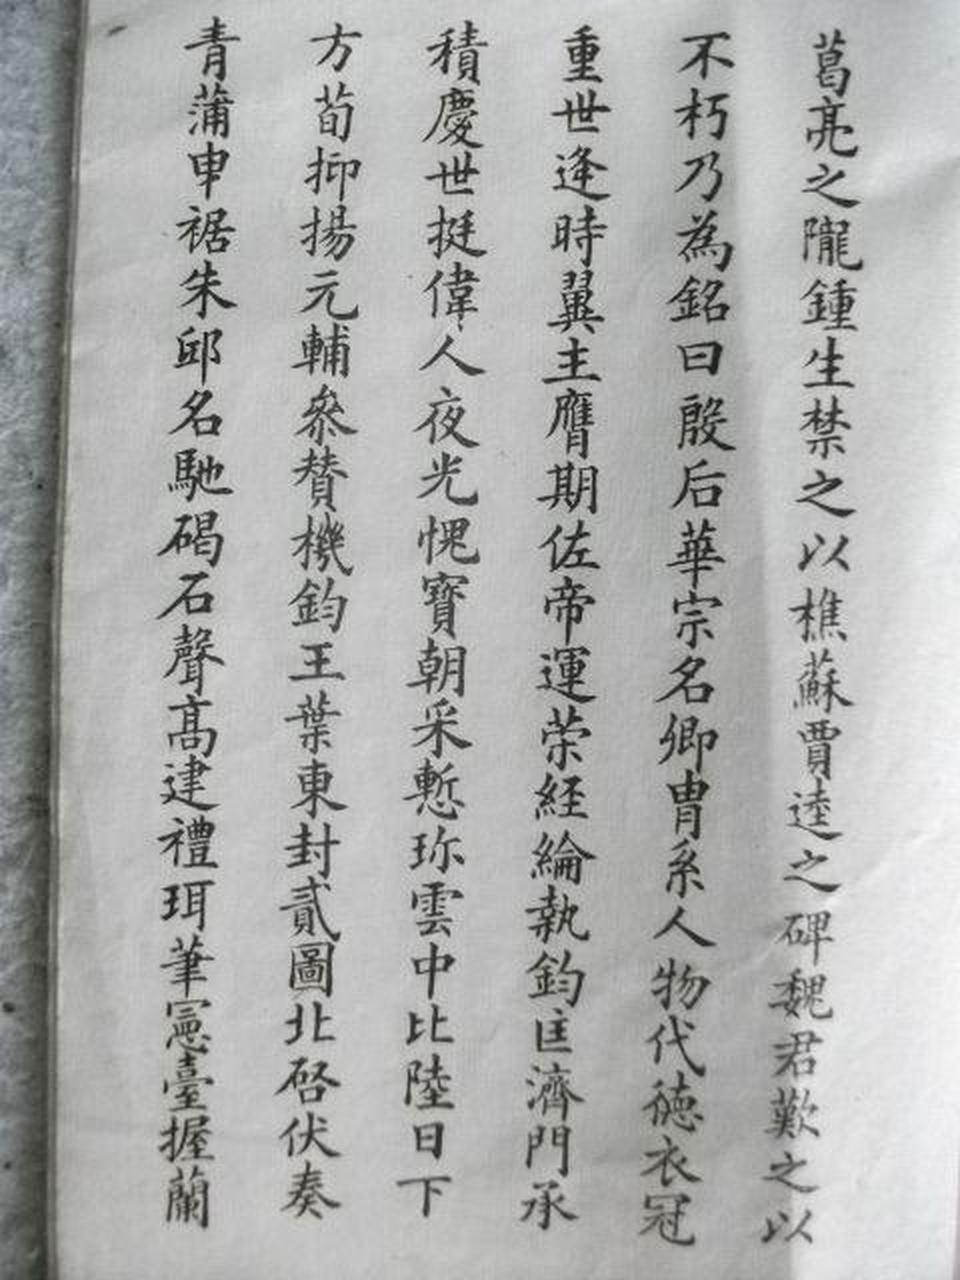 葛亮之隴鍾生禁之以樵蘇賈逵之碑魏君歎之以
不朽乃為銘曰殷后華宗名卿胄系人物代德衣冠
重世逢時翼主膺期佐帝運荣経綸執鈞匡濟門承
積慶世挺偉人夜光愧寶朝采慙珎雲中比陸日下
方荀抑揚元輔叅賛機鈞王葉東封貳圖北啓伏奏
青蒲申裾朱邱名馳碣石聲高建禮珥筆憲臺握蘭